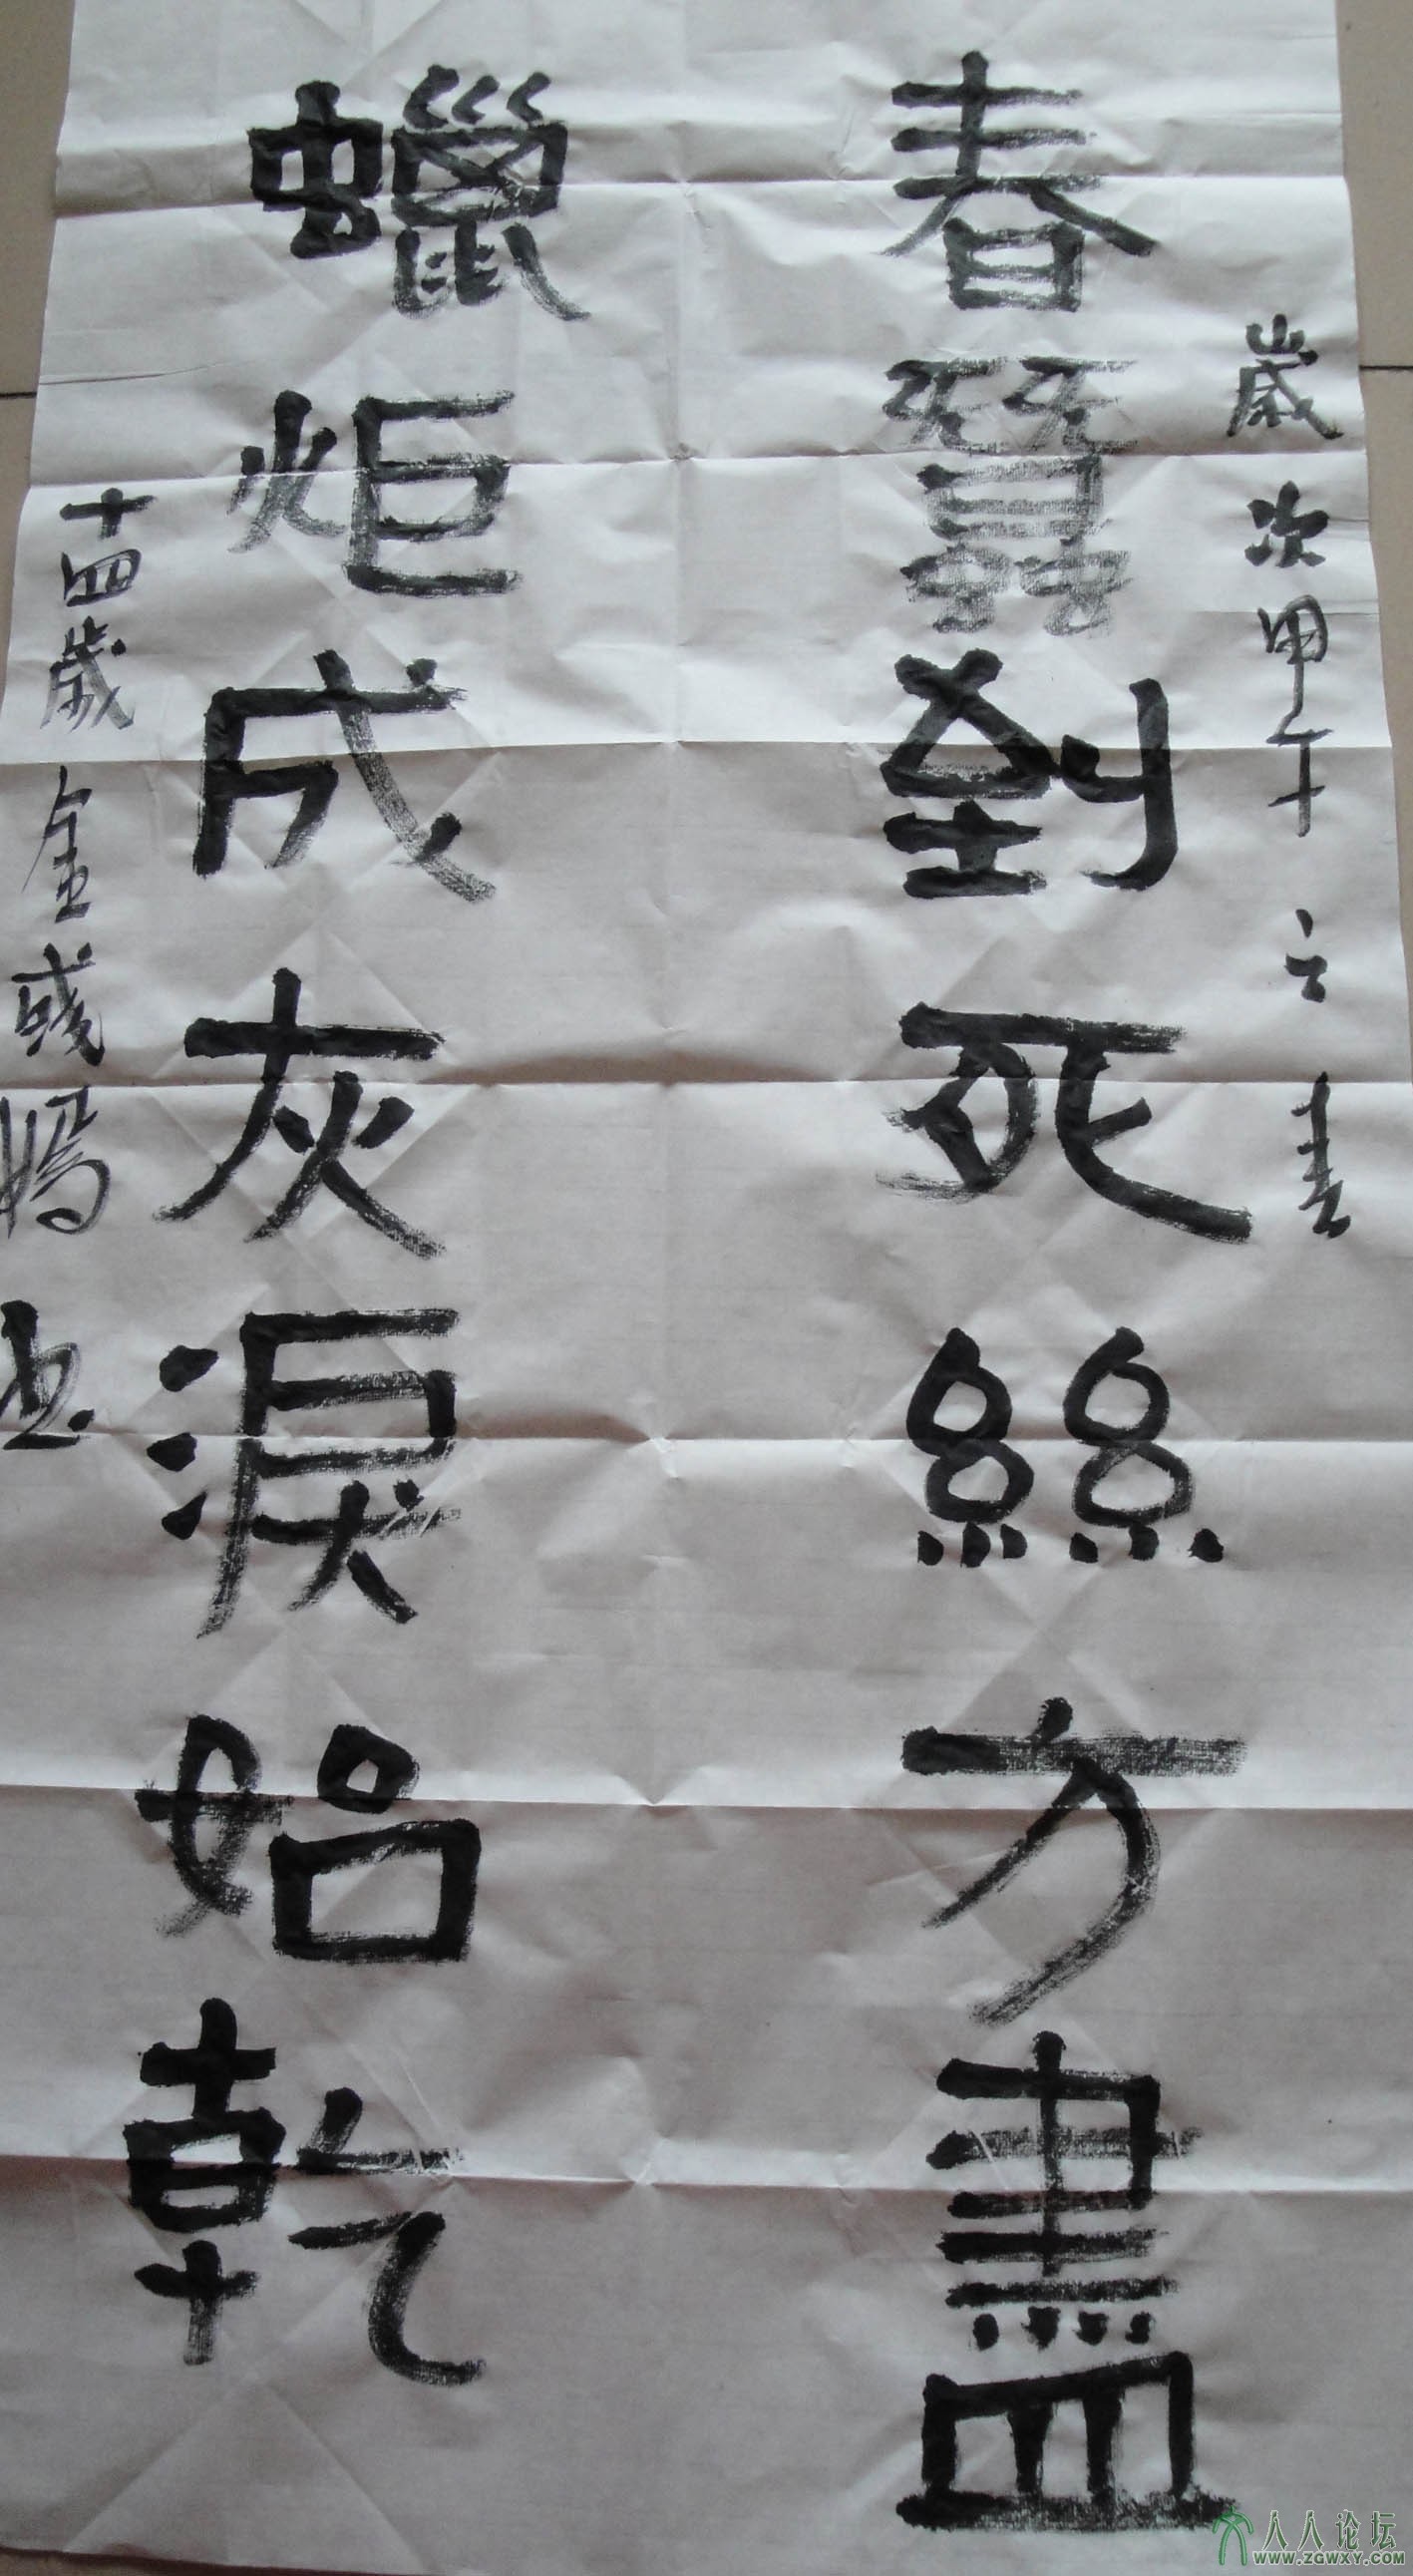 歲次甲午之春
春蠶到死絲方盡
蠟炬成灰淚始乾
十四歲金彧嫣書
人人论坛
WWW.ZGWXY.COM